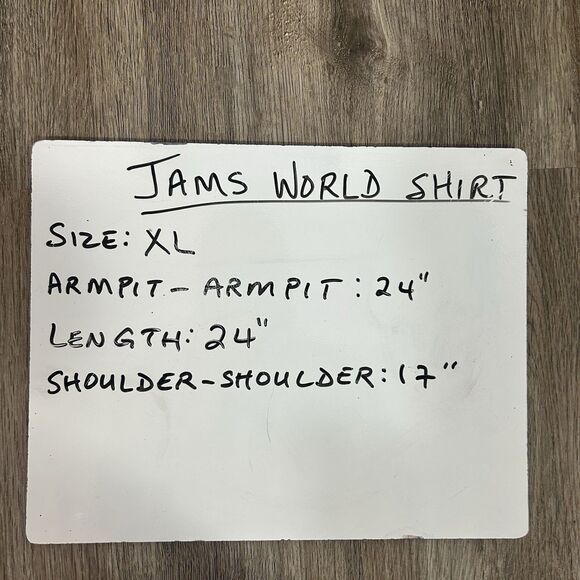 JAMS WORLD SHIRT
SIZE: XL
ARMPIT - ARMPIT: 24"
LENGTH: 24"
SHOULDER-SHOULDER: 17"